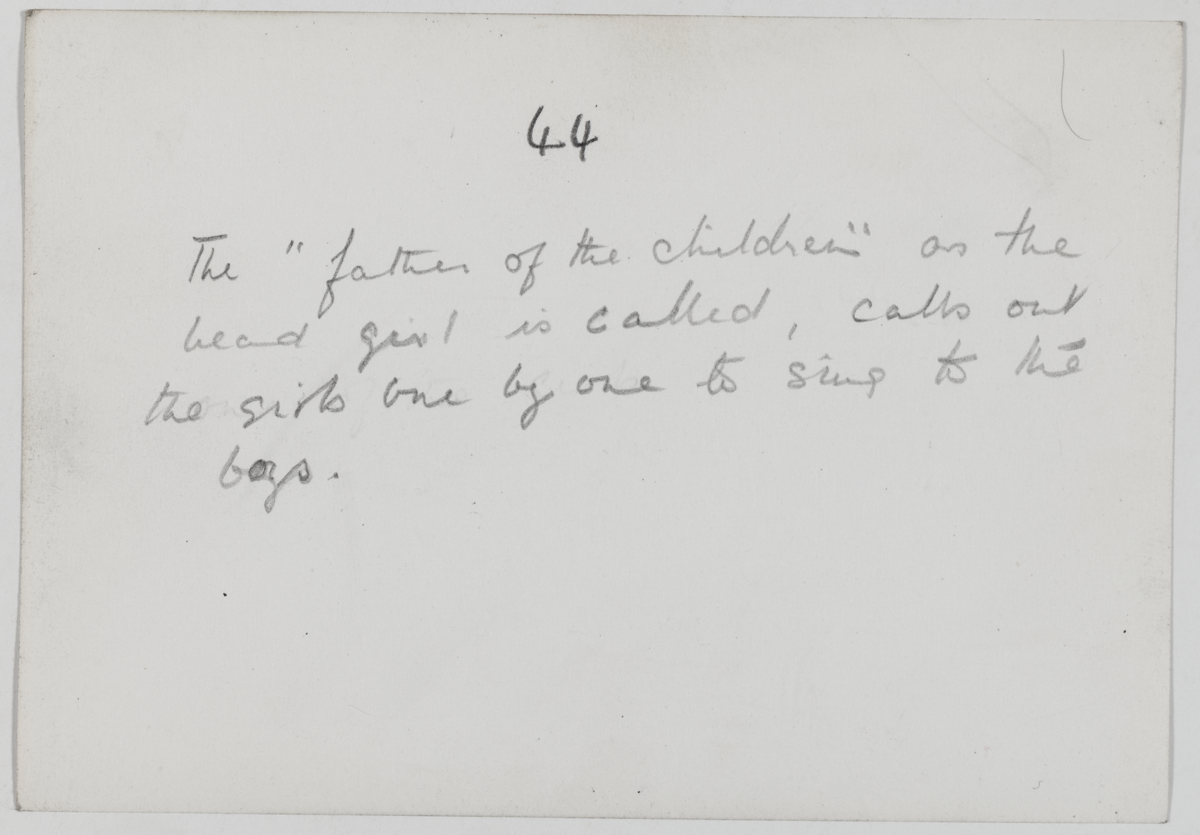 44
The "father of the children" as the
head girl is called, calls out
the girls one by one to sing to the
boys.